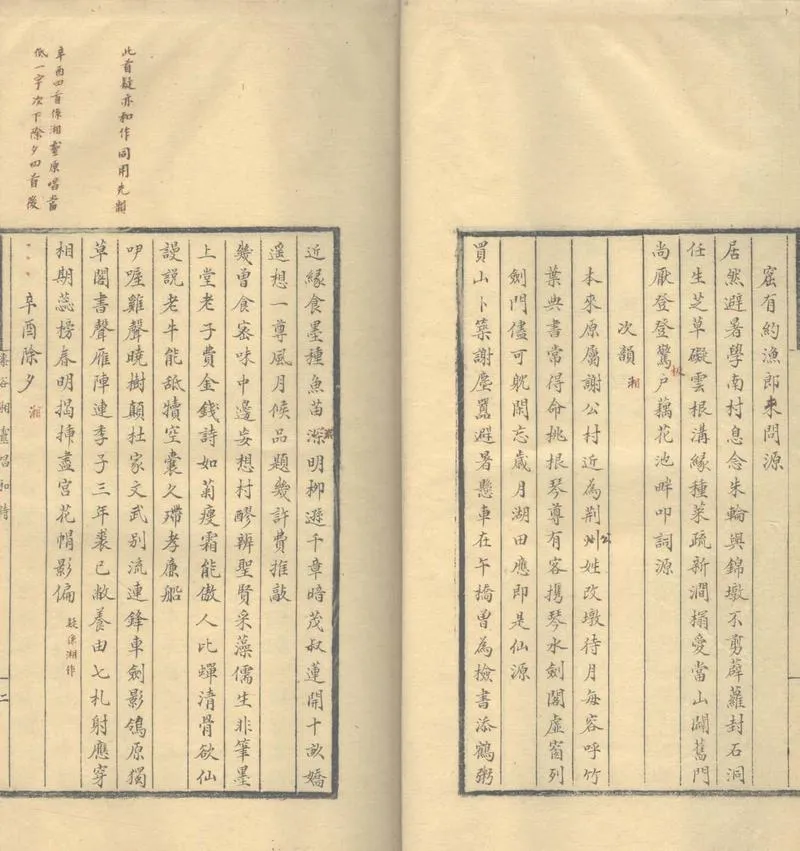 窟有約漁郎來問源
居然避暑學南村息念朱輪與錦墩不剪薜蘿封石洞
任生芝草礙雲根溝緣種菜疏新澗榻愛當山闢舊門
尚厭登登驚戶藕花池畔叩詞源
板
次韻 湘
本來原屬謝公村近為荆州姓改墩待月每容呼竹
公
葉典書常得命挑根琴尊有客携琴水劍閣虛窗列
劍門儘可躭閑忘歲月湖田應即是仙源
買山卜築謝塵囂避暑懸車在午橋曾為檢書添鶴粥
此首疑亦和作同用先韻
辛酉四首係湘靈原唱當
低一字次下除夕四首後
近緣食墨種魚苗深明柳遜千章暗茂叔蓮開十畝嬌
遥想一尊風月候品題幾許費推敲
幾曾食蜜味中邊妄想村醪辨聖賢采藻儒生非筆墨
上堂老子費金錢詩如菊瘦霜能傲人比蟬清骨欲仙
謾説老牛能舐犢空囊久殢孝廉船
咿喔雞聲曉樹顛杜家文武別流連鋒車劍影鴒原獨
草閣書聲雁陣連季子三年裘已敝養由七札射應穿
相期蕊榜春明揭揷盡宮花帽影偏 疑係湘作
辛酉除夕 湘
湘靈唱和詩
二